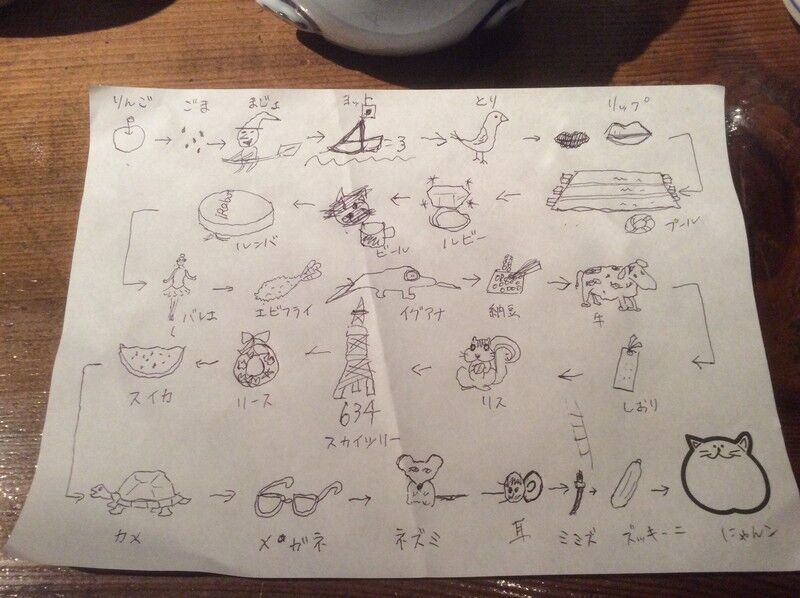 りんご ごま まじょ ヨット とり リップ
iRobot
ルンバ ビール ルビー プール
バレエ エビフライ イグアナ 納豆 牛
スイカ リース 634 リス しおり
スカイツリー
カメ メガネ ネズミ 耳 ミミズ ズッキーニ